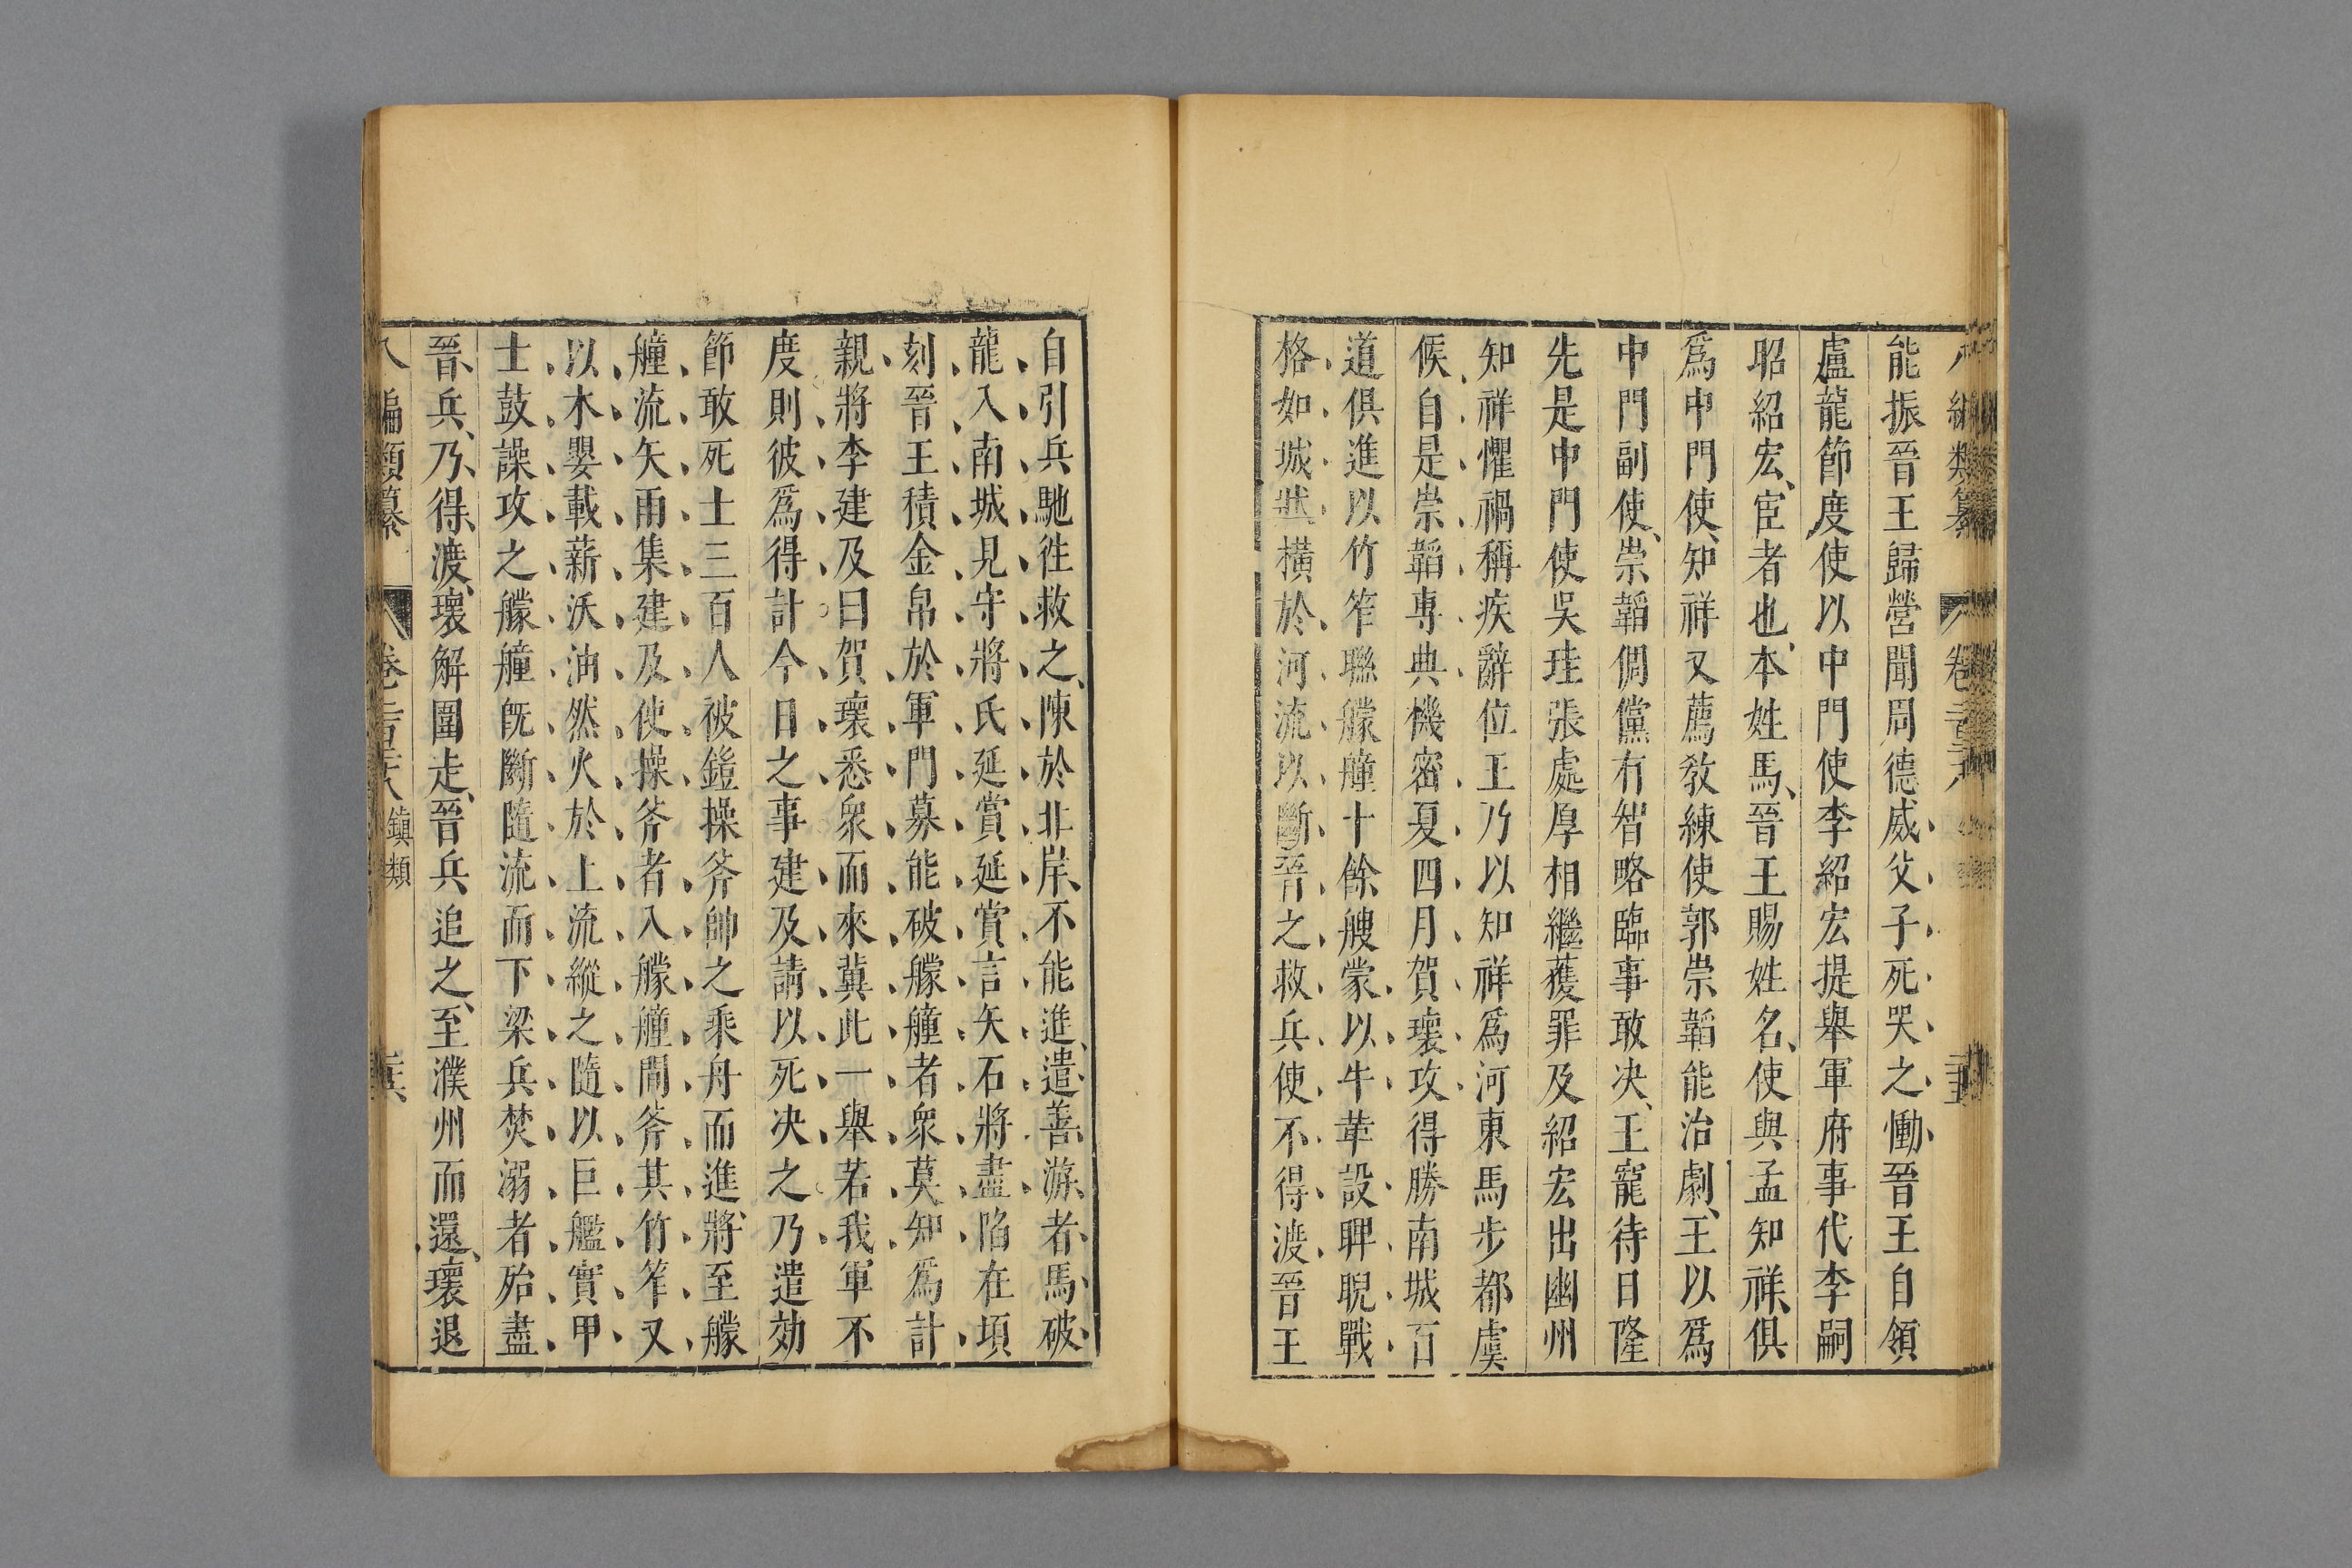 八編類纂 卷二百三十八 三十五
能振晉王歸營聞周德威父子死哭之慟晉王自領
盧龍節度使以中門使李紹宏提舉軍府事代李嗣
昭紹宏宦者也本姓馬晉王賜姓名使與孟知祥俱
爲中門使知祥又薦敎練使郭崇韜能治劇王以爲
中門副使崇韜倜儻有智略臨事敢决王寵待日隆
先是中門使吳珪張處厚相繼獲罪及紹宏出幽州
知祥懼禍稱疾辭位王乃以知祥爲河東馬步都虞
候自是崇韜專典機密夏四月賀瓌攻得勝南城百
道俱進以竹笮聯艨艟十餘艘蒙以牛革設睥睨戰
格如城狀橫於河流以斷晉之救兵使不得渡晉王
自引兵馳徃救之陳於北岸不能進遣善游者馬破
龍入南城見守將氏延賞延賞言矢石將盡陷在頃
刻晉王積金帛於軍門募能破艨艟者衆莫知爲計
親將李建及曰賀瓌悉衆而來冀此一舉若我軍不
度則彼爲得計今日之事建及請以死决之乃遣効
節敢死士三百人被鎧操斧帥之乘舟而進將至艨
艟流矢雨集建及使操斧者入艨艟間斧其竹笮又
以木罌載薪沃油然火於上流縱之隨以巨艦實甲
士鼓譟攻之艨艟旣斷隨流而下梁兵焚溺者殆盡
晉兵乃得渡瓌解圍走晉兵追之至濮州而還瓌退
八編類纂 卷二百三十八 鎮類 三十六